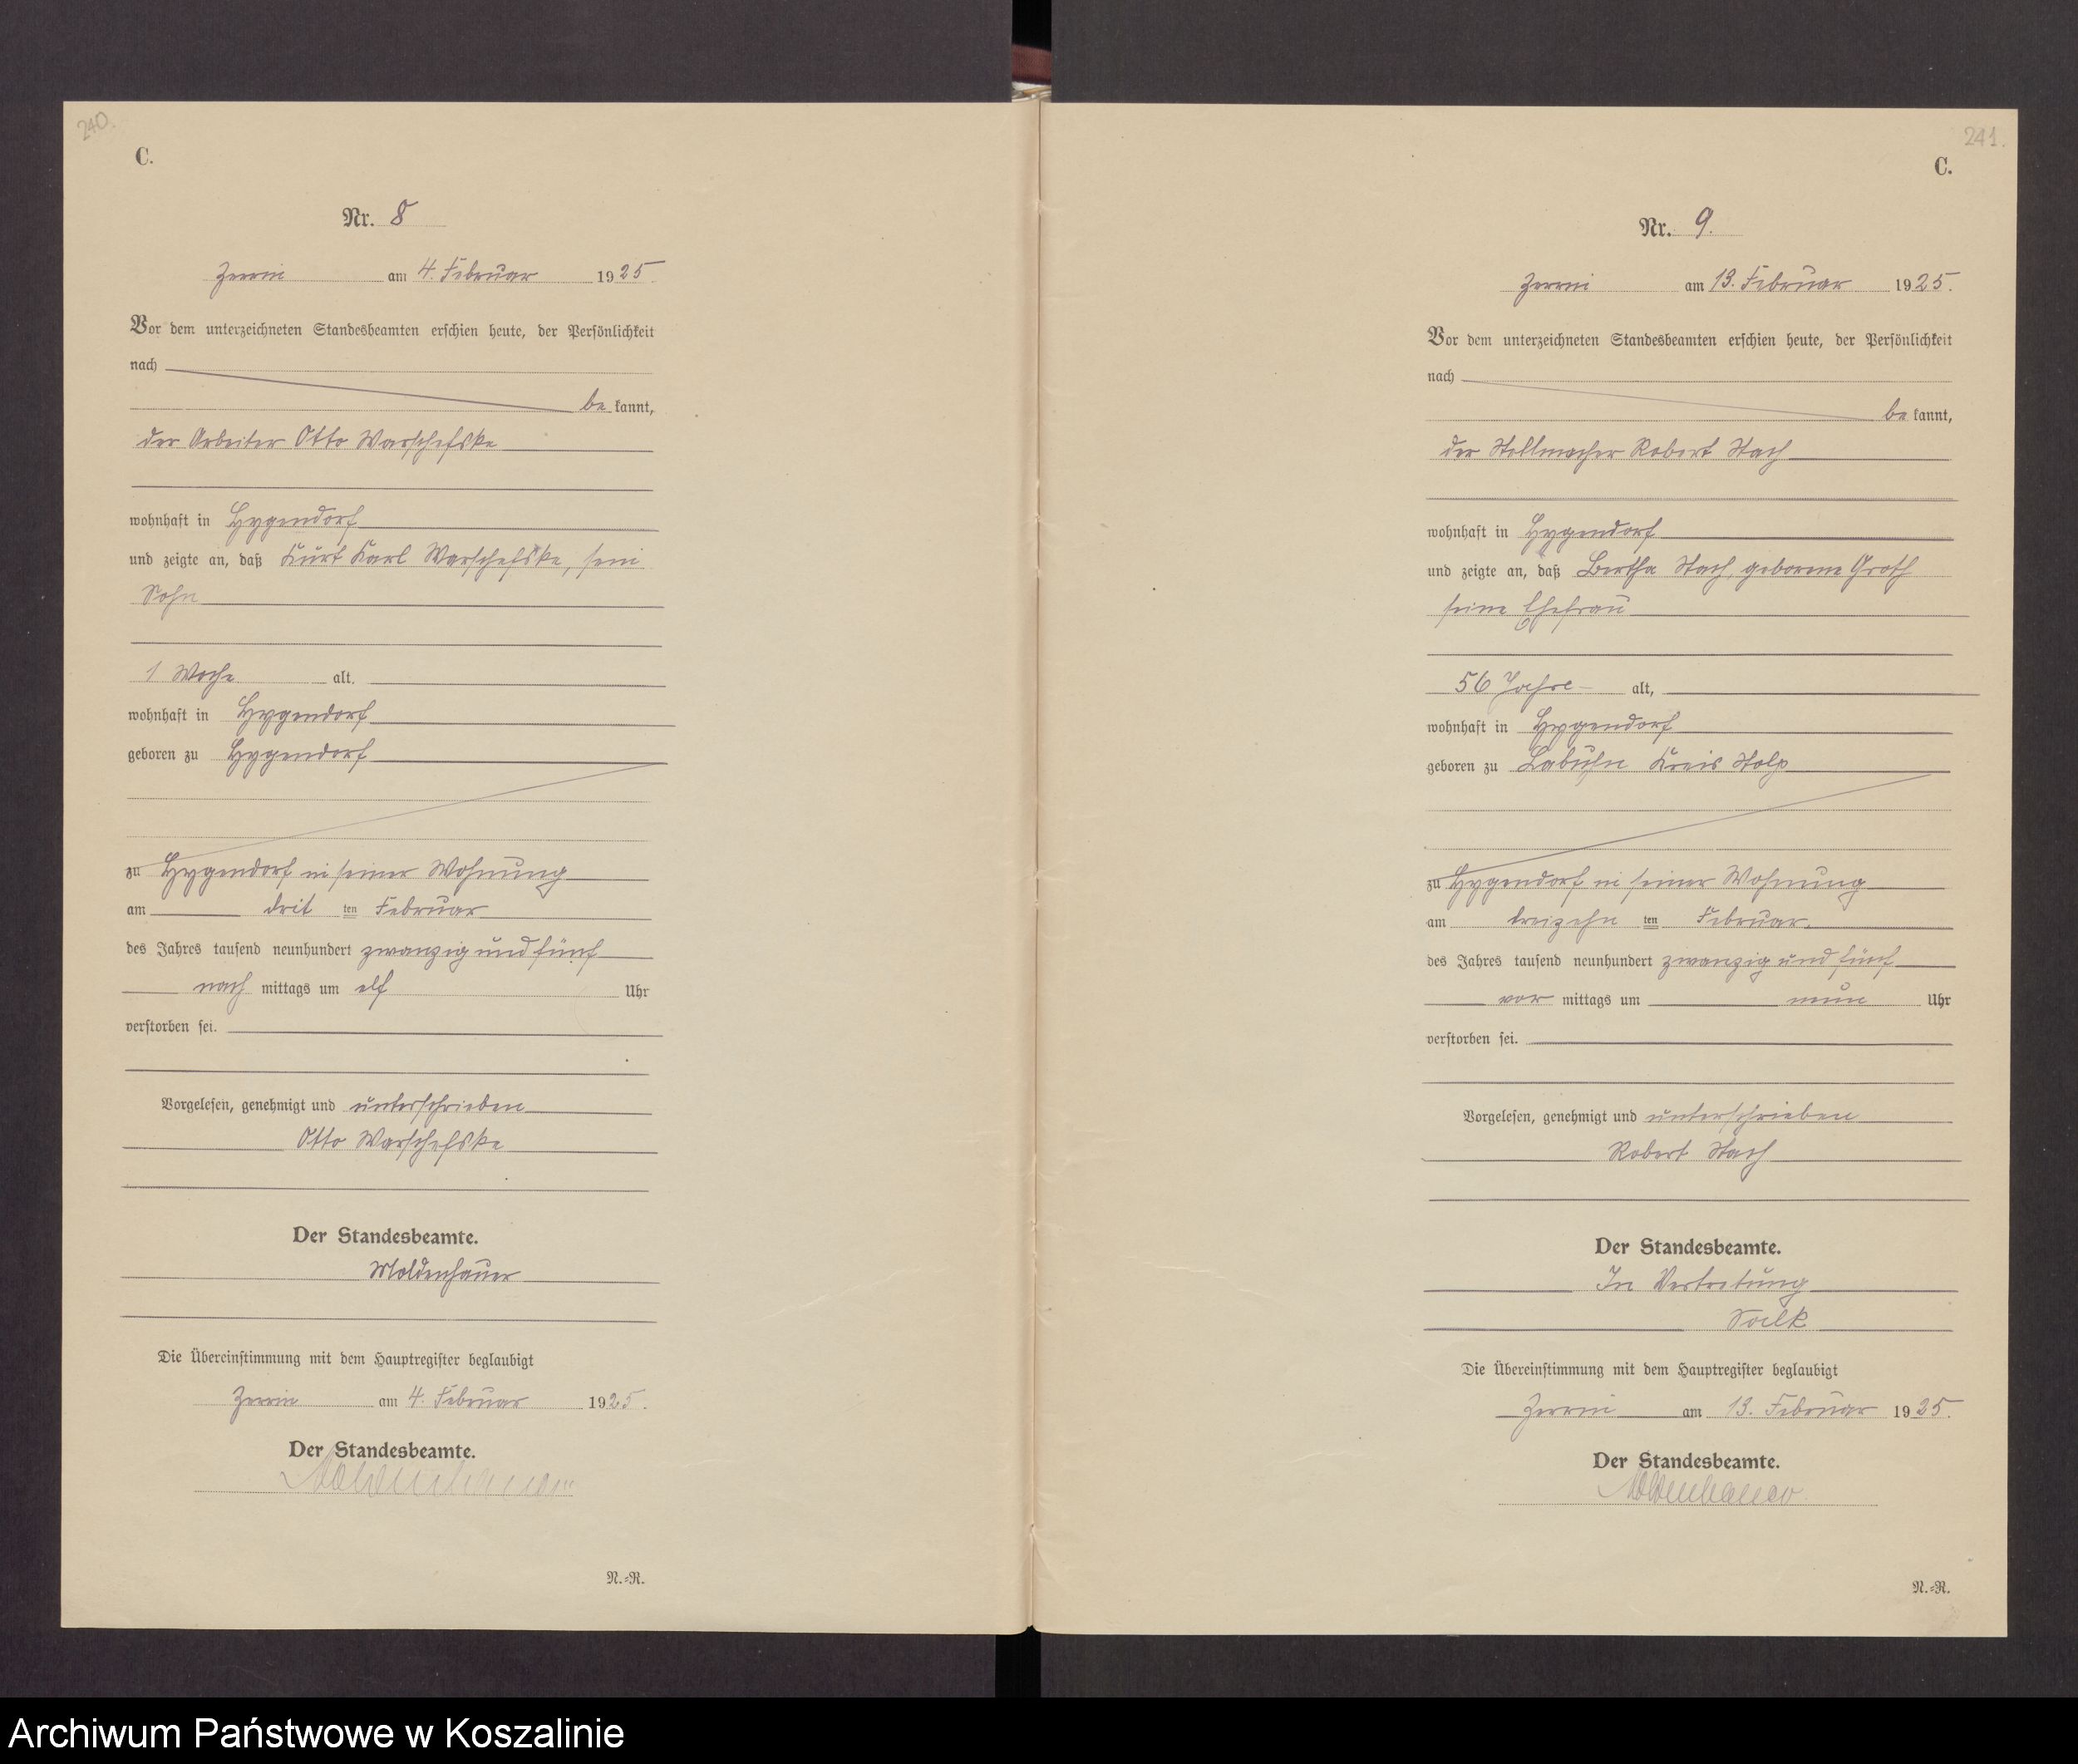 240.
C.
Nr. 8
Zerrin am 4. Februar 1925.
Vor dem unterzeichneten Standesbeamten erschien heute, der Persönlichkeit
nach
be kannt,
der Arbeiter Otto Warschefske
wohnhaft in Hygendorf
und zeigte an, daß Kurt Karl Warschefske, sein
Sohn
1 Woche alt.
wohnhaft in Hygendorf
geboren zu Hygendorf
zu Hygendorf in seiner Wohnung
am drit ten Februar
des Jahres tausend neunhundert zwanzig und fünf
nach mittags um elf Uhr
verstorben sei.
Vorgelesen, genehmigt und unterschrieben
Otto Warschefske
Der Standesbeamte.
Moldenhauer
Die Übereinstimmung mit dem Hauptregister beglaubigt
Zerrin am 4. Februar 1925.
Der Standesbeamte.
Moldenhauer
N.=R.
241.
C.
Nr. 9.
Zerrin am 13. Februar 1925.
Vor dem unterzeichneten Standesbeamten erschien heute, der Persönlichkeit
nach
be kannt,
der Stellmacher Robert Stach
wohnhaft in Hygendorf
und zeigte an, daß Bertha Stach, geborene Groth
seine Ehefrau
56 Jahre alt,
wohnhaft in Hygendorf
geboren zu Labuhn Kreis Stolp
zu Hygendorf in seiner Wohnung
am dreizehn ten Februar.
des Jahres tausend neunhundert zwanzig und fünf
vor mittags um neun Uhr
verstorben sei.
Vorgelesen, genehmigt und unterschrieben
Robert Stach
Der Standesbeamte.
In Vertretung
Die Übereinstimmung mit dem Hauptregister beglaubigt
Zerrin am 13. Februar 1925.
Der Standesbeamte.
Moldenhauer
N.=R.
Archiwum Państwowe w Koszalinie